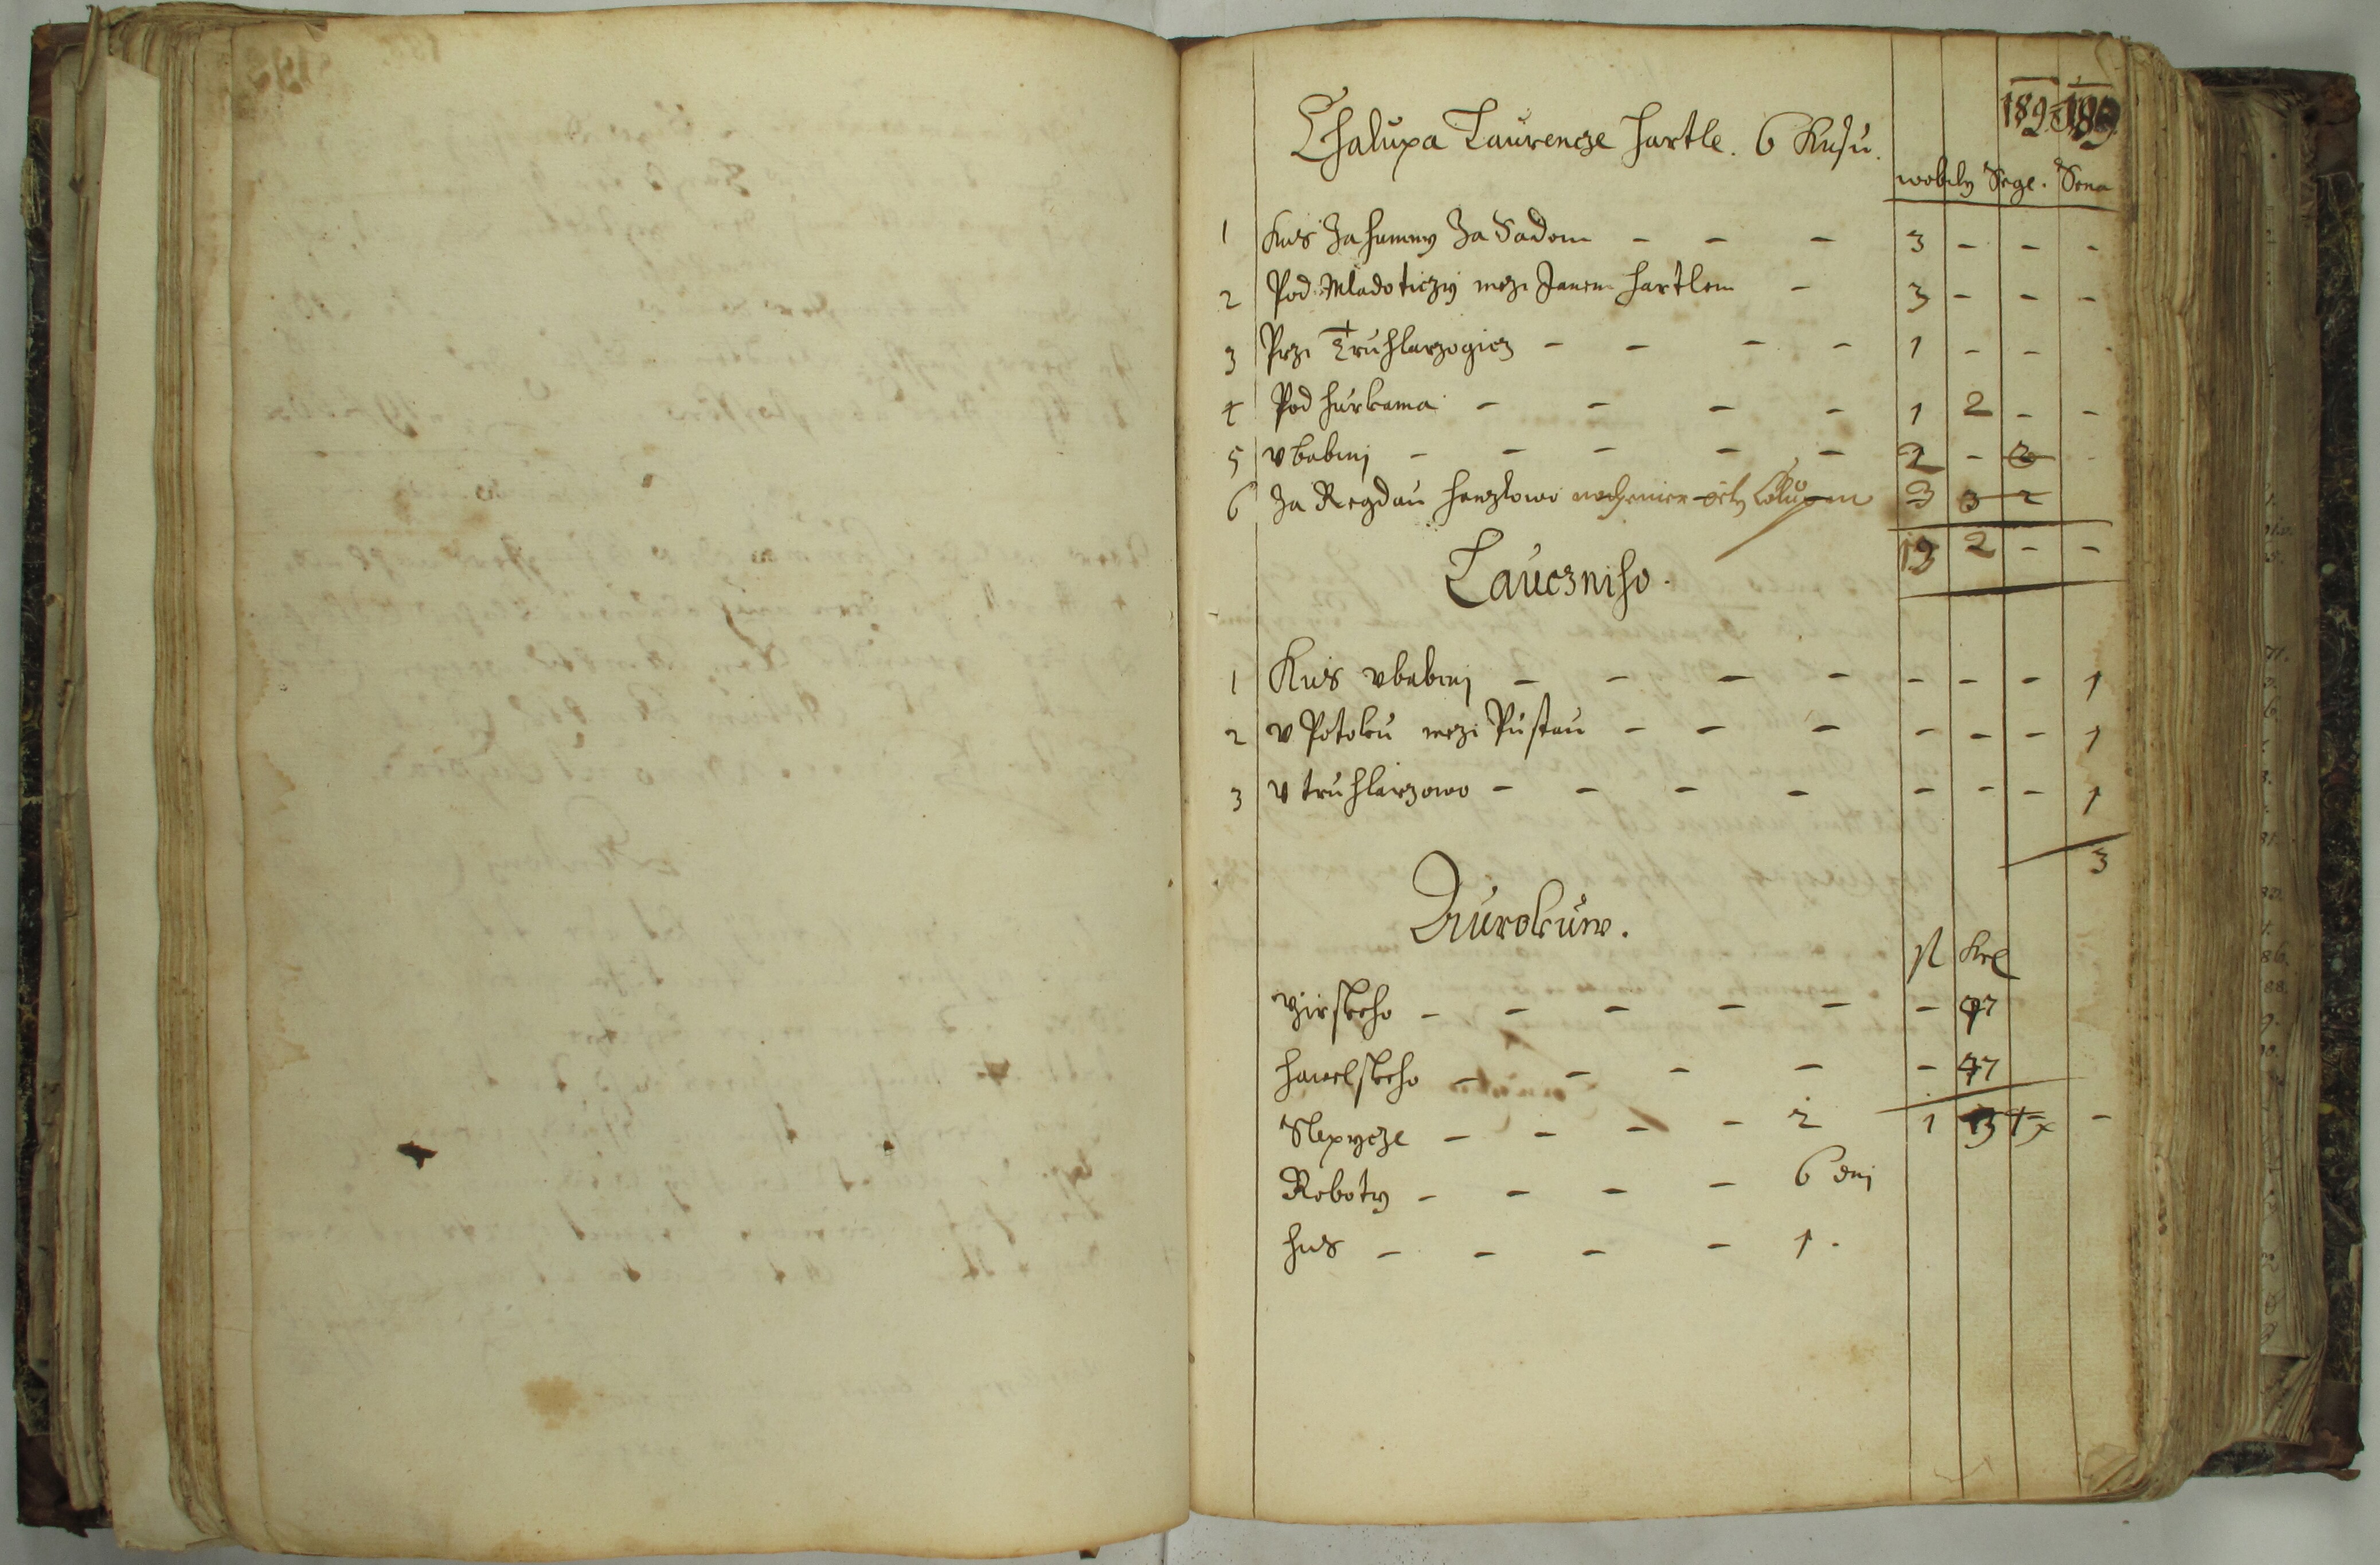 189. 189
Chalupa Laurencze Hartle. 6 Kusu.
wobily Sege. Sena
1 Kus Za humny Za Sadem - - - 3 - - -
2 Pod Mladoticzy mezi Janem Hartlem - 3 - - -
3 Przi Truhlarzogicz - - - - 1 - - -
4 Pod hurkama - - - - 1 2 - -
5 v babinj - - - - - 2 - 2 -
6 Za Regdau henzlowo 3 3 2
13 2 - -
Lauczniho.
1 Kus v babinj - - - - - - - 1
2 v Potoku mezi Pustau - - - - - - 1
3 v truhlarzowo - - - - - - - 1
3
Aurokuw.
fl Krl
Girskeho - - - - - - 47
Hawelskeho - - - - - 47
Slepycze - - - - 2 1
Roboty - - - - 6 dnj
hus - - - - 1.